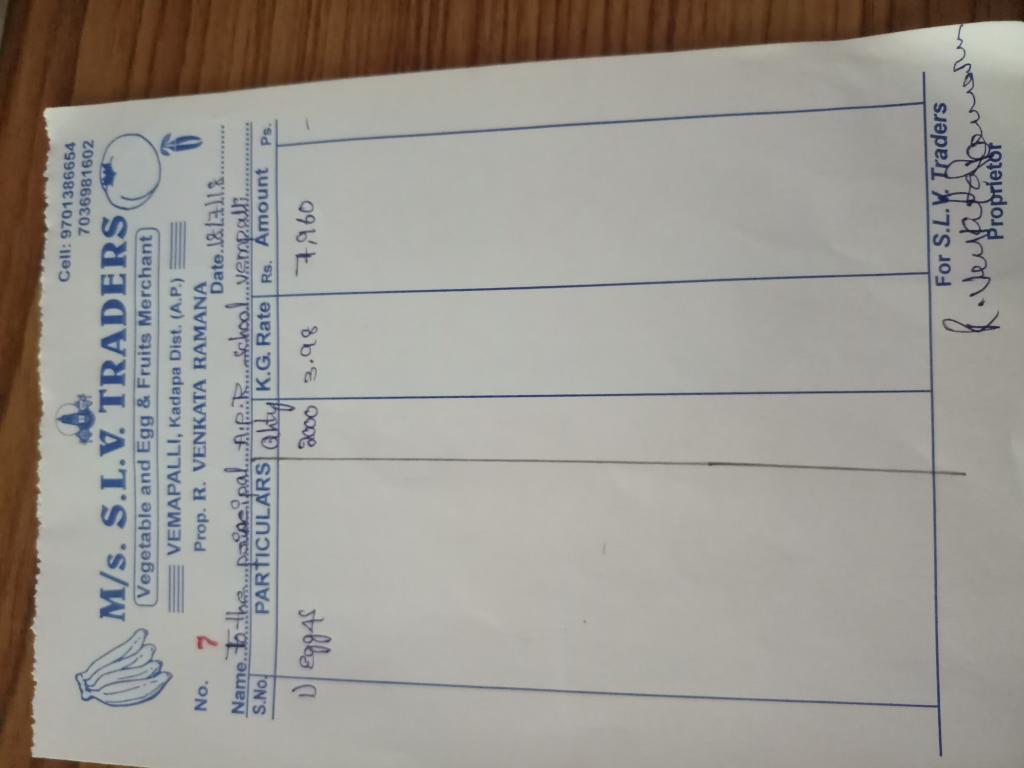 Cell: 9701386654
7036981602
M/s. S.L.V. TRADERS
Vegetable and Egg & Fruits Merchant
VEMAPALLI, Kadapa Dist. (A.P.)
Prop. R. VENKATA RAMANA
No. 7 Date. 12/7/18
Name. To the principal A.P.R school vempalli
S.No. PARTICULARS Qnty K.G. Rate Rs. Amount Ps.
1) Eggs 2000 3.98 7,960 -
For S.L.V. Traders
Proprietor